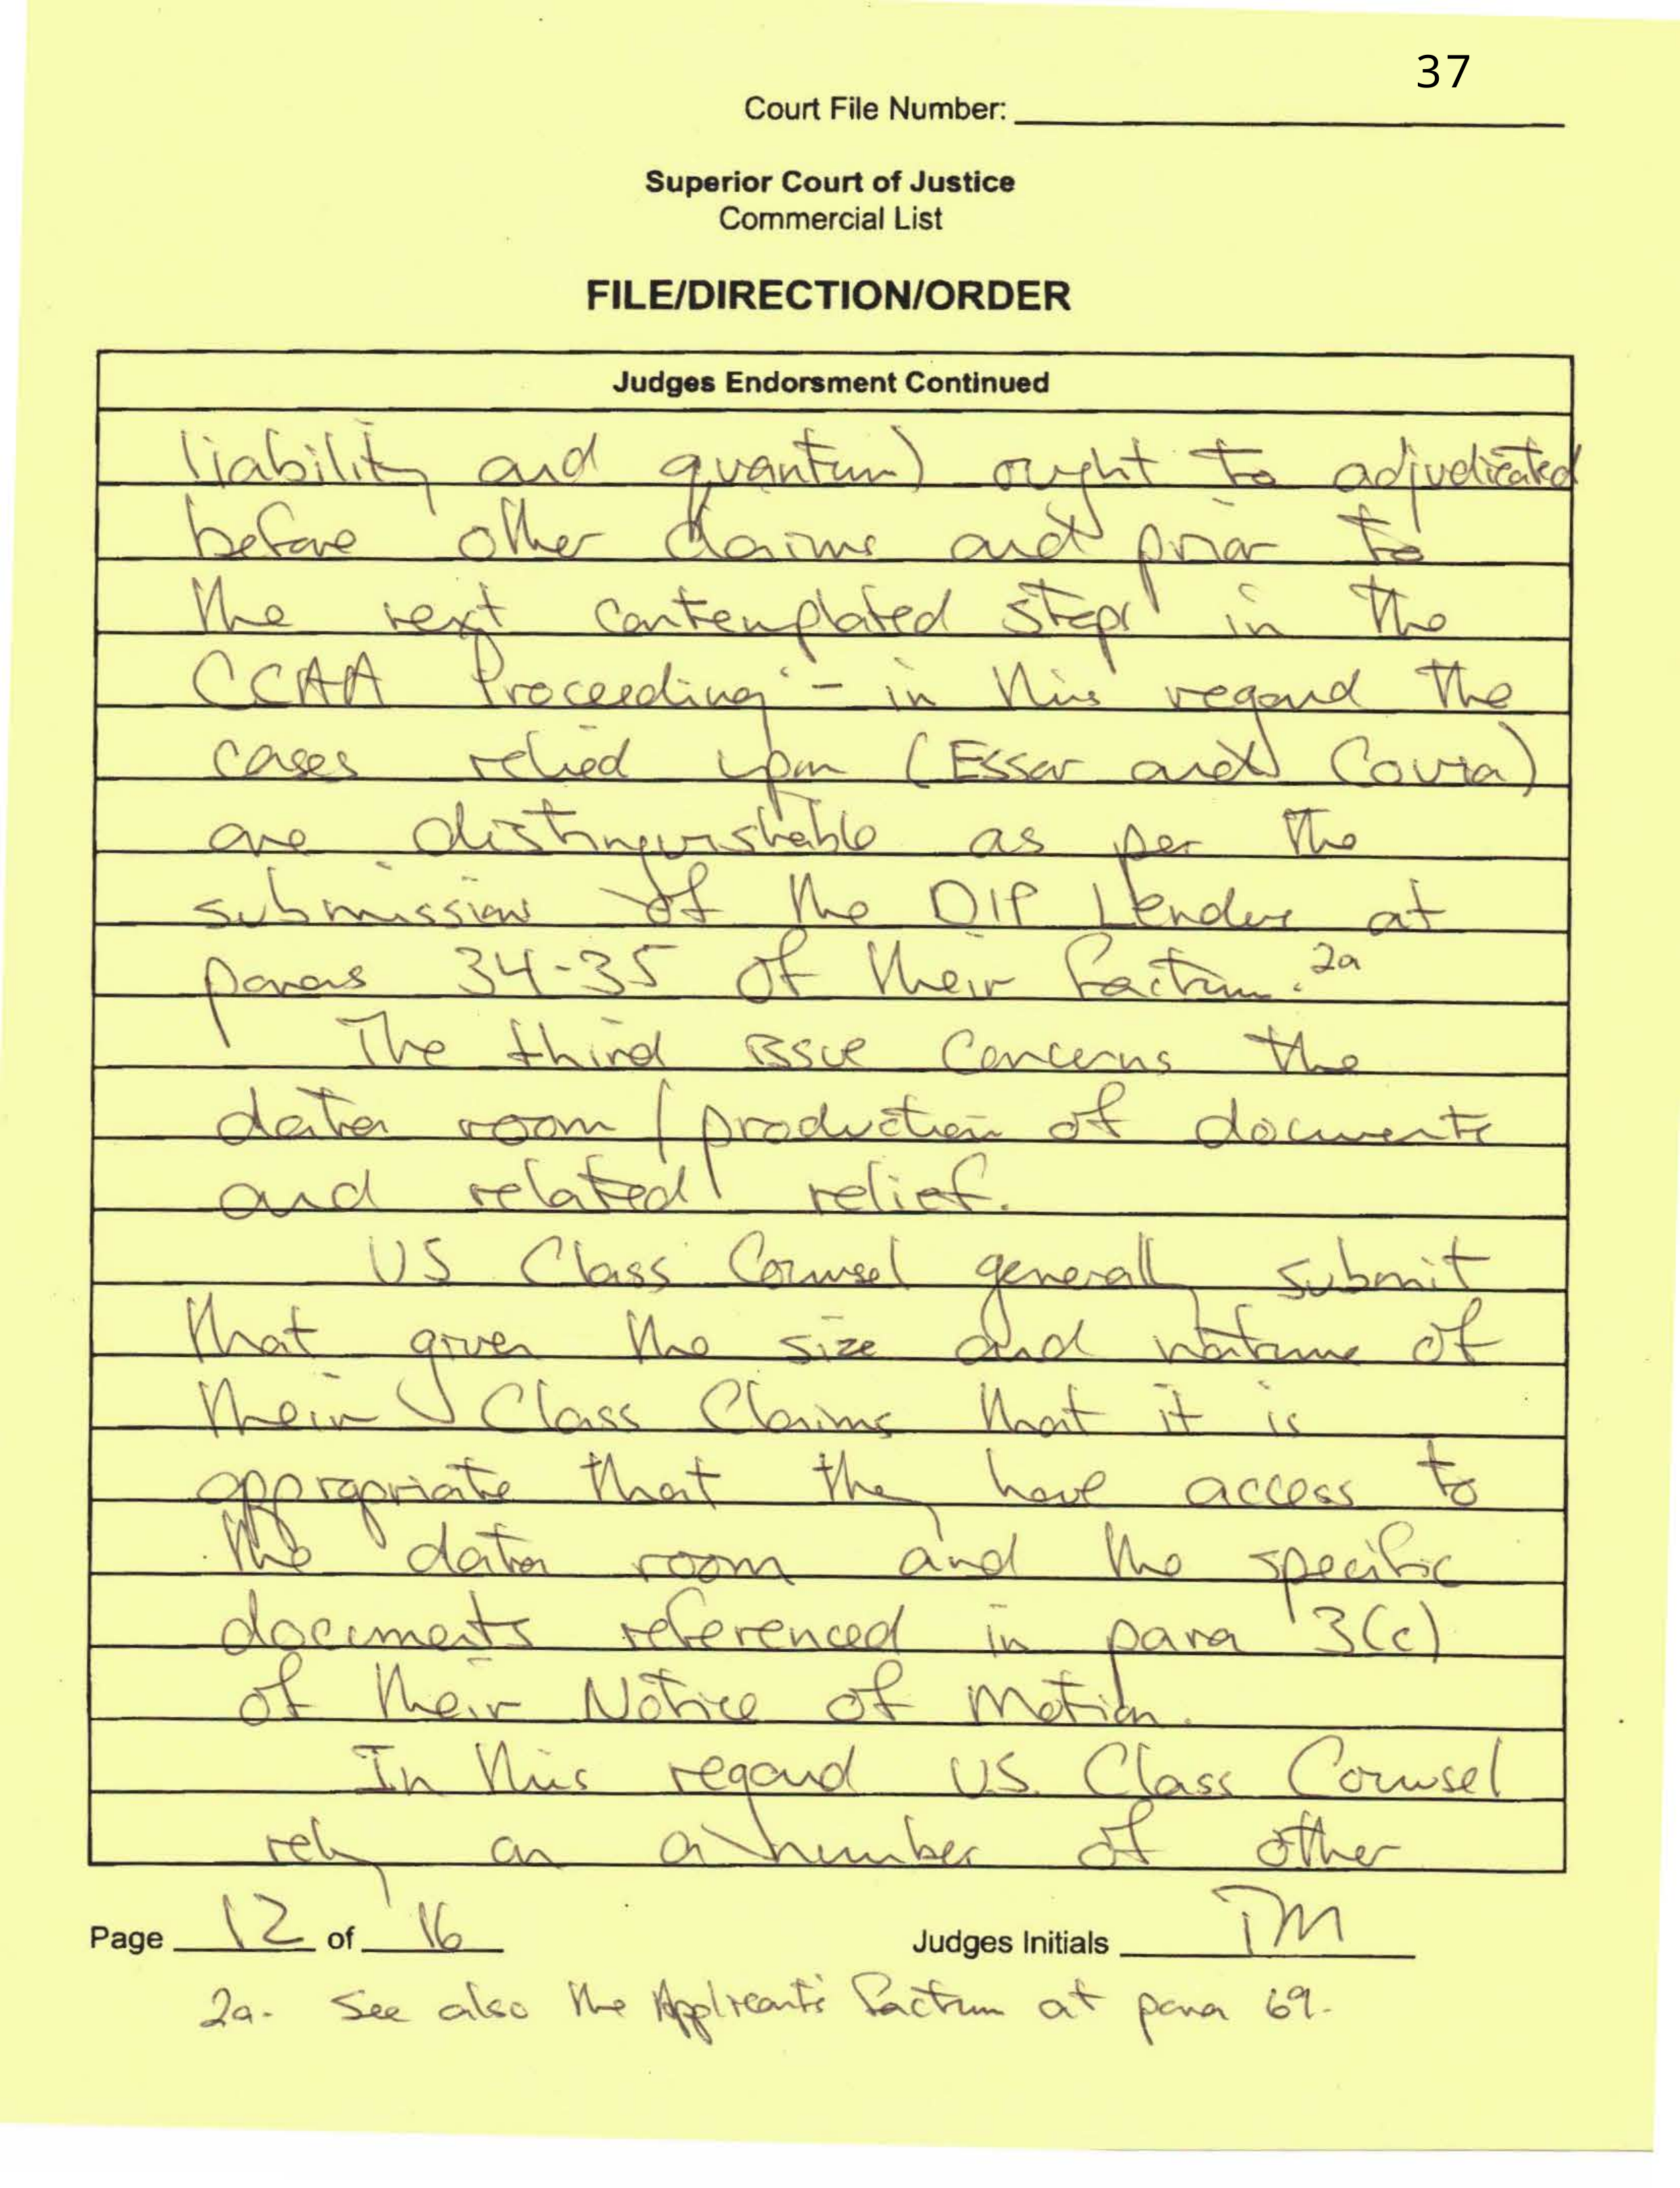 37
Court File Number:
Superior Court of Justice
Commercial List
FILE/DIRECTION/ORDER
Judges Endorsment Continued
liability and quantum) ought to adjudicated
before other claims and prior to
the next contemplated steps in the
CCAA Proceeding - in this regard the
cases relied upon (Essar and Covia)
are distinguishable as per the
submission of the DIP Lender at
paras 34-35 of their factum. 2a
The third issue concerns the
data room / production of documents
and related relief.
US Class Counsel generally submit
that given the size and nature of
their Class Claims that it is
appropriate that they have access to
the data room and the specific
documents referenced in para 3(c)
of their Notice of Motion.
In this regard US Class Counsel
rely on a number of other
Page 12 of 16 Judges Initials TM
2a. See also the Applicants' factum at para 69.